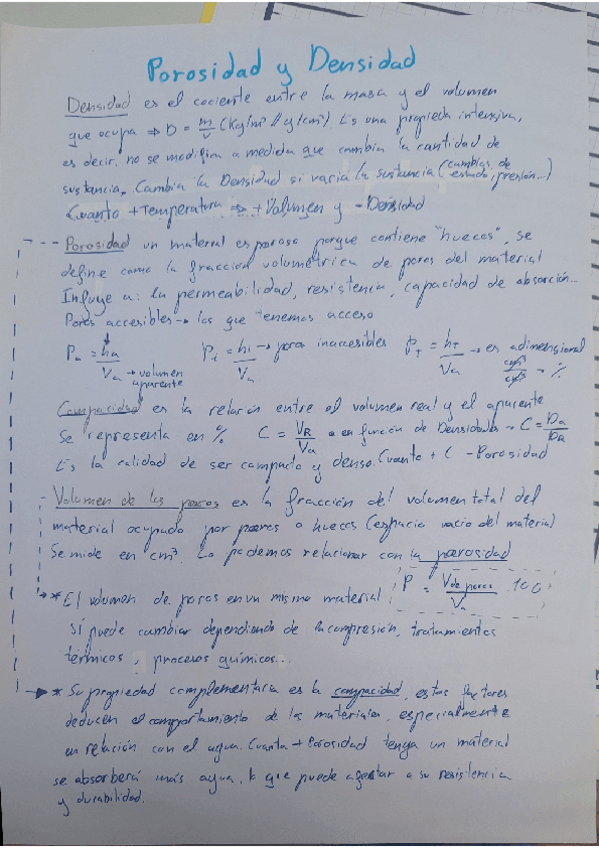 Porosidad y Densidad
Densidad es el cociente entre la masa y el volumen
que ocupa ⇒ D = m/v (Kg/m³ // g/cm³) Es una propieda intensiva,
es decir, no se modifica a medida que cambia la cantidad de
sustancia. Cambia la Densidad si varía la sustancia (cambios de estado, presión...)
Cuanto + Temperatura ⇒ + Volumen y - Densidad
Porosidad un material es poroso porque contiene "huecos", se
define como la fracción volumétrica de poros del material
Influye a: la permeabilidad, resistencia, capacidad de absorción...
Poros accesibles → los que tenemos acceso
Pa = ha/Va → volumen aparente Pi = hi/Va → poros inaccesibles PT = hT/Va → es adimensional cm³/cm³ → %
Compacidad es la relación entre el volumen real y el aparente
Se representa en % C = VR/Va o en función de Densidades → C = Da/DR
Es la calidad de ser compacto y denso. Cuanto + C - Porosidad
- Volumen de los poros es la fracción del volumen total del
material ocupado por poros o huecos (espacio vacío del material)
Se mide en cm³ Lo podemos relacionar con la porosidad
P = Vde poros/Va · 100
* El volumen de poros en un mismo material
sí puede cambiar dependiendo de la compresión, tratamientos
térmicos, procesos químicos...
* Su propiedad complementaria es la compacidad, estos factores
deducen el comportamiento de los materiales, especialmente
en relación con el agua. Cuanta + Porosidad tenga un material
se absorberá más agua, lo que puede afectar a su resistencia
y durabilidad.